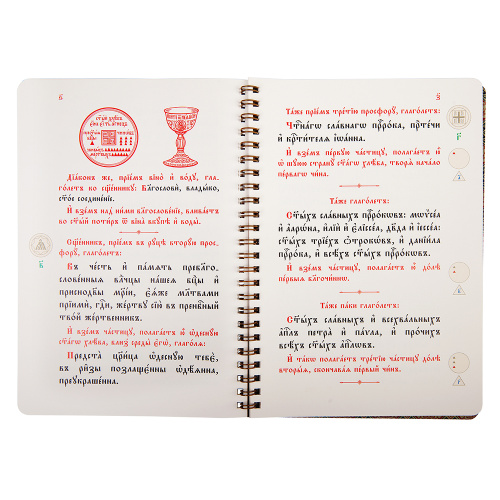 Дїа́конъ же, прїе́мъ вїно̀ и҆ во́дꙋ, гла-
го́летъ ко сщ҃е́нникꙋ: Бл҃гословѝ, влады́ко,
ст҃о́е соедине́нїе.
И҆ взе́мъ над ни́ми благослове́нїе, влива́етъ
во ст҃ы́й поти́ръ ѿ вїна̀ вкꙋ́пѣ и҆ воды̀.
Сщ҃е́нникъ, прїе́мъ въ рꙋцѣ̀ вторꙋ́ю прос-
форꙋ̀, глаго́летъ:
Въ че́сть и҆ па́мѧть пребл҃го-
слове́нныѧ влⷣчцы на́шеѧ бцⷣы и҆
приснодв҃ы мр҃і́и, є҆ѧ́же мл҃твами
прїимѝ, гдⷭ҇и, же́ртвꙋ сїю̀ въ пренбⷭ҇ный
тво́й же́ртвенникъ.
И҆ взе́мъ части́цꙋ, полага́етъ ю҆̀ ѡ҆деснꙋ́ю
ст҃а́гѡ хлѣ́ба, бли́з̾ среды̀ є҆гѡ̀, глаго́лѧ:
Предста̀ цр҃и́ца ѡ҆деснꙋ́ю тебє̀,
въ ри́зы позлаще́нны ѡ҆дѣ́ѧнна,
преꙋкра́шенна.
Та́же прїе́мъ тре́тїю просфорꙋ̀, глаго́летъ:
Чⷭ҇тна́гѡ сла́внагѡ прⷪ҇ро́ка, пртⷣе́чи
и҆ крⷭ҇ти́телѧ і҆ѡа́нна.
И҆ взе́мъ пе́рвꙋю части́цꙋ, полага́етъ ю҆̀
ѡ҆ шꙋ́юю странꙋ̀ ст҃а́гѡ хлѣ́ба, творѧ̀ нача́ло
пе́рвагѡ чи́на.
Та́же глаго́летъ:
Ст҃ы́хъ сла́вныхъ прⷪ҇ро́кѡвъ: мѡѷсе́а
и҆ а҆арѡ́на, и҆лїѝ и҆ є҆лїссе́а, дв҃да и҆ і҆ессе́а:
ст҃ы́хъ трїе́хъ ѻ҆трокѡ́въ, и҆ данїи́ла
прⷪ҇ро́ка, и҆ всѣ́хъ ст҃ы́хъ прⷪ҇ро́кѡвъ.
И҆ взе́мъ части́цꙋ, полага́етъ ю҆̀ до́лѣ
пе́рвыѧ благочи́ннѡ.
Та́же па́ки глаго́летъ:
Ст҃ы́хъ сла́вныхъ и҆ всехва́льныхъ
а҆пⷭ҇лъ петра̀ и҆ па́ѵла, и҆ про́чихъ
всѣ́хъ ст҃ы́хъ а҆пⷭ҇лѡвъ.
И҆ та́кѡ полага́етъ тре́тїю части́цꙋ до́лѣ
вторы́ѧ, скончава́ѧ пе́рвый чи́нъ.